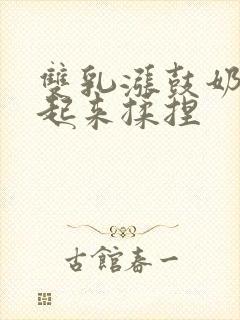 雙乳漲鼓奶
起来揉捏
古館春一